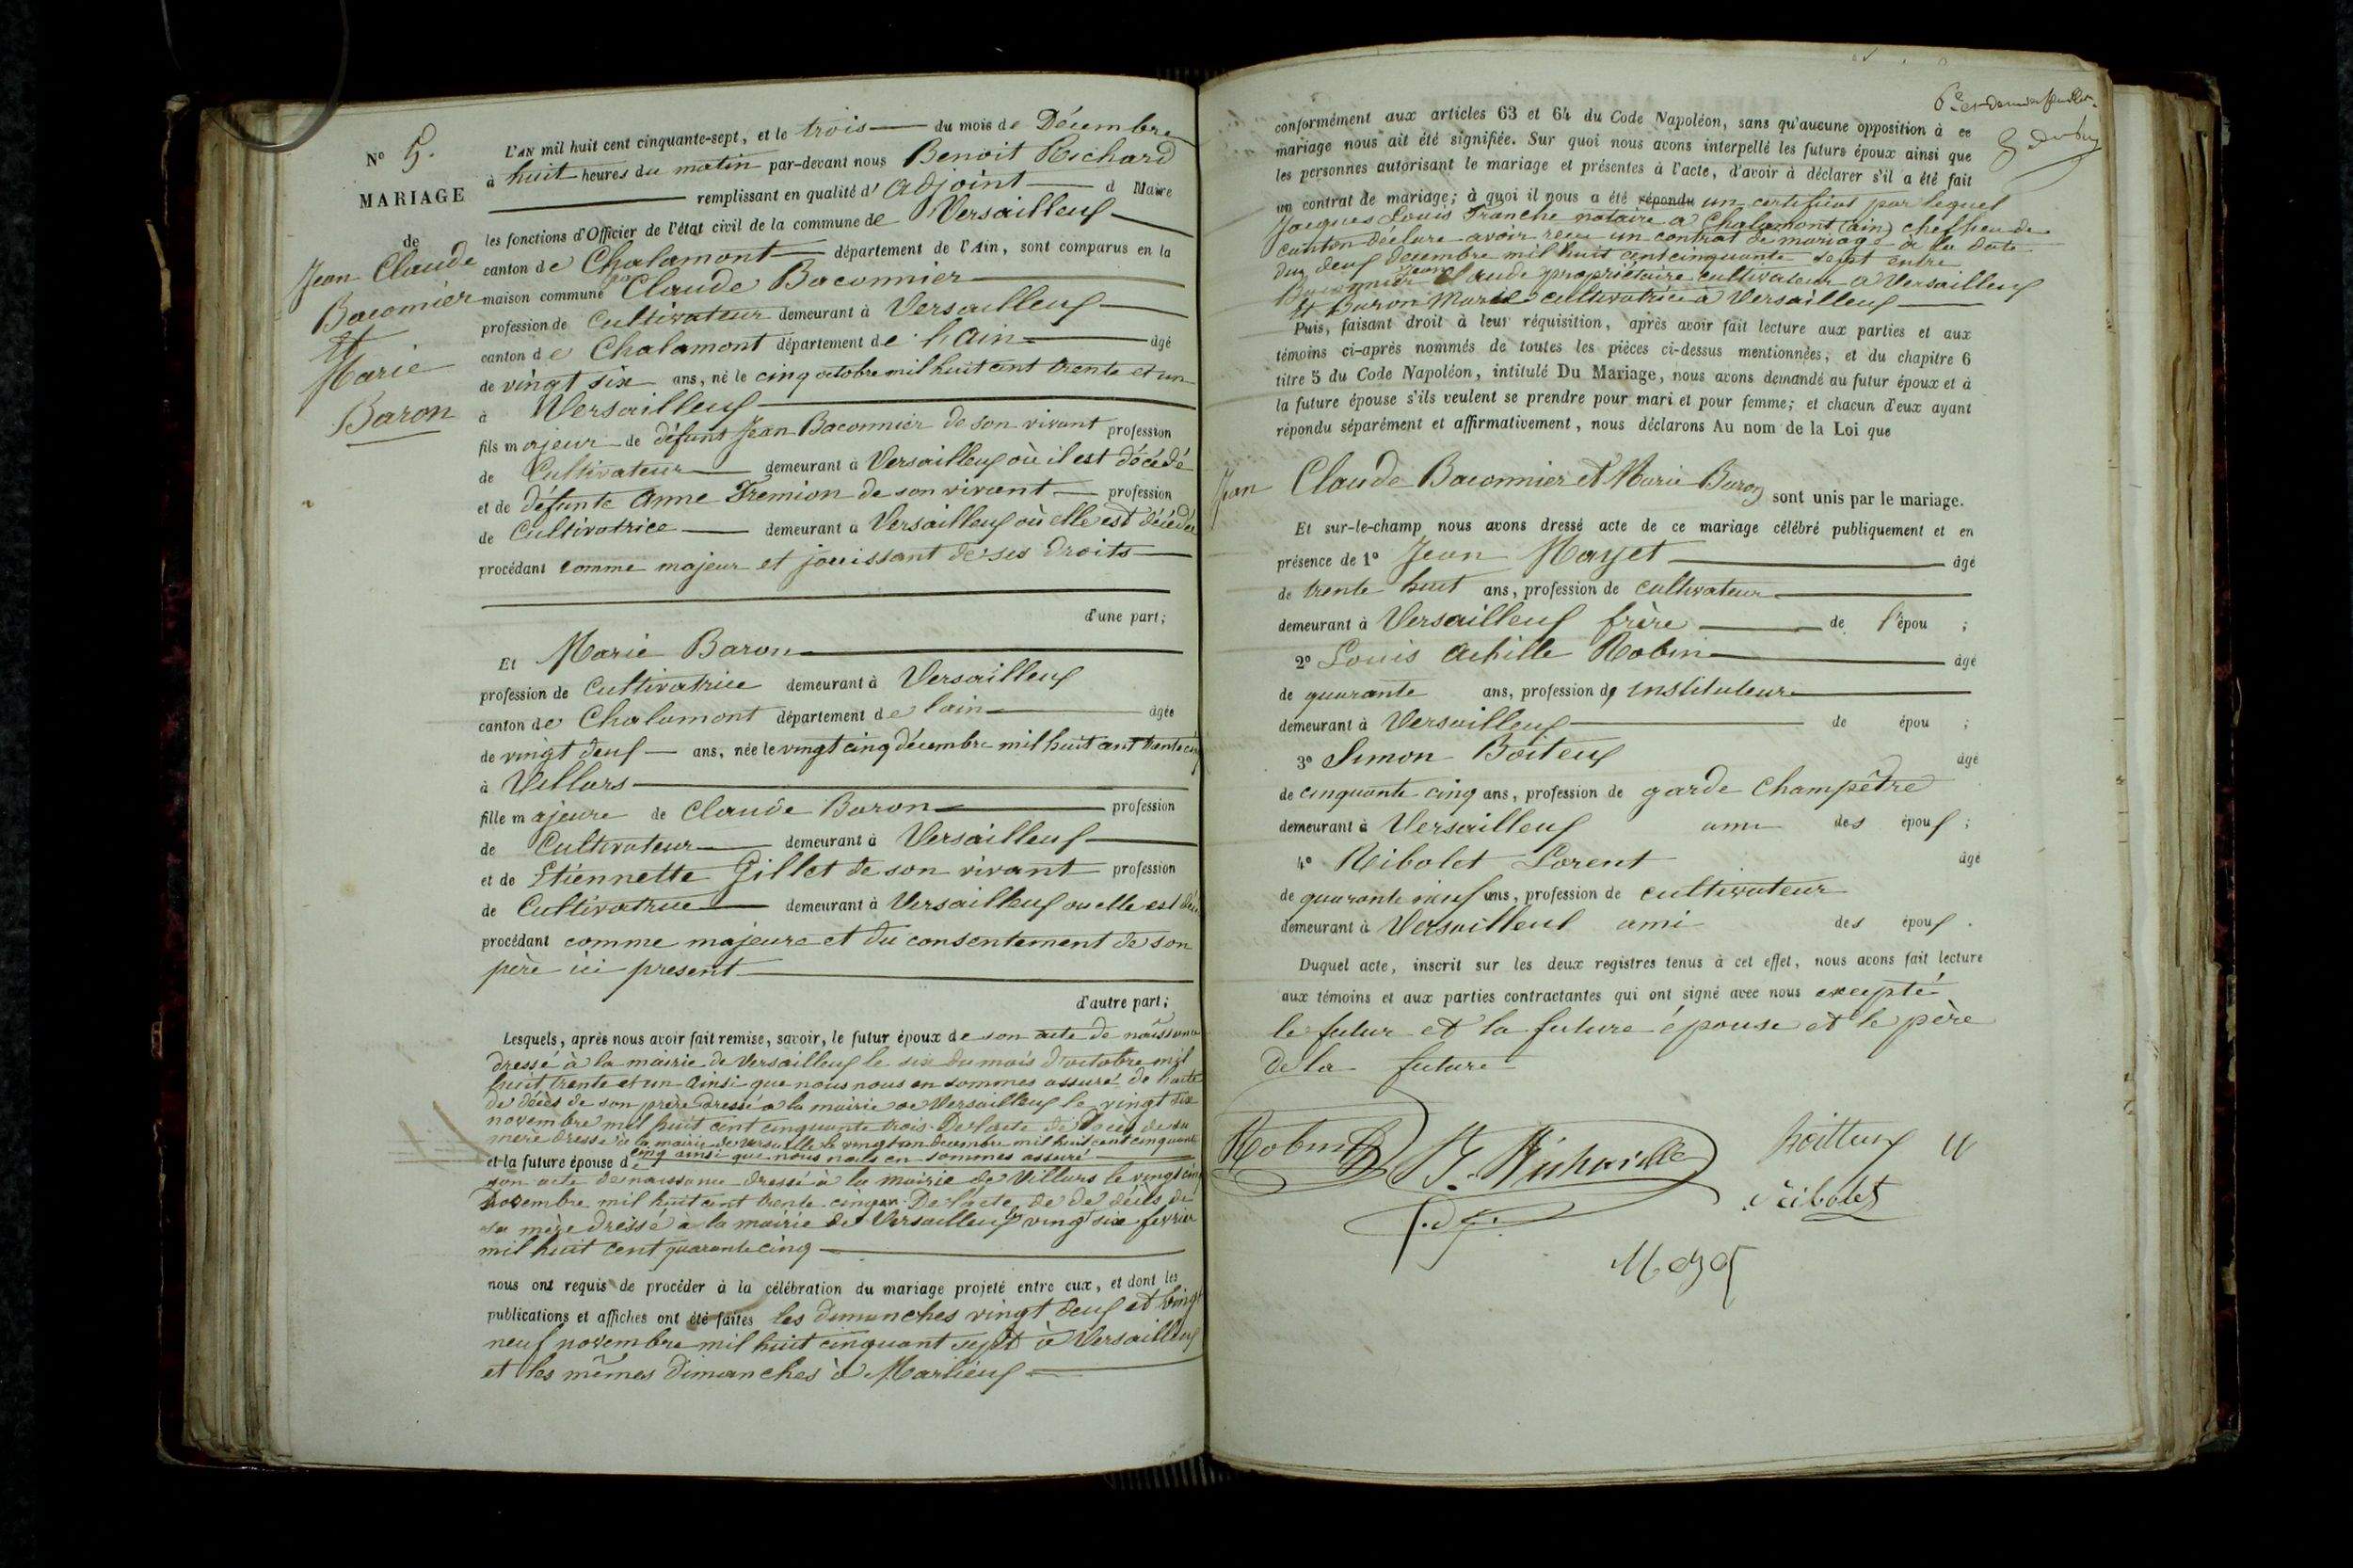 N° 5.
MARIAGE
de
Jean Claude
Baconnier
et
Marie
Baron
L'AN mil huit cent cinquante-sept, et le trois du mois de Décembre
à huit heures du matin par-devant nous Benoit Richard
remplissant en qualité d' adjoint d Maire
les fonctions d'Officier de l'état civil de la commune de Versailleux
canton de Chalamont département de l'Ain, sont comparus en la
maison commune Jean Claude Baconnier
profession de Cultivateur demeurant à Versailleux
canton de Chalamont département de l'Ain âgé
de vingt six ans, né le cinq octobre mil huit cent trente et un
à Versailleux
fils majeur de défunt Jean Baconnier de son vivant profession
de Cultivateur demeurant à Versailleux où il est décédé
et de défunte Anne Fremion de son vivant profession
de Cultivatrice demeurant à Versailleux où elle est décédée
procédant comme majeur et jouissant de ses droits
d'une part;
Et Marie Baron
profession de Cultivatrice demeurant à Versailleux
canton de Chalamont département de lain âgée
de vingt deux ans, née le vingt cinq décembre mil huit cent trente cinq
à Villars
fille majeure de Claude Baron profession
de Cultivateur demeurant à Versailleux
et de Etiennette Gillet de son vivant profession
de Cultivatrice demeurant à Versailleux ou elle est
procédant comme majeure et du consentement de son
père ici present
d'autre part;
Lesquels, après nous avoir fait remise, savoir, le futur époux de son acte de naissance
dressé à la mairie de Versailleux le six du mois d'octobre mil
huit trente et un ainsi que nous nous en sommes assuré de l'acte
de décès de son père dressé à la mairie de Versailleux le vingt six
novembre mil huit cent cinquante trois. De l'acte de décès de sa
mère dressé à la mairie de Versailleux le vingt un decembre mil huit cent cinquante
cinq ainsi que nous nous en sommes assuré
et la future épouse de
son acte de naissance dressé à la mairie de Villars le vingt cinq
Novembre mil huit cent trente cinq. De l'acte de de décès de
sa mère dressé à la mairie de Versailleux le vingt six fevrier
mil huit cent quarante cinq
nous ont requis de procéder à la célébration du mariage projeté entre eux, et dont les
publications et affiches ont été faites les dimanches vingt deux et vingt
neuf novembre mil huit cinquant sept à Versailleux
et les mêmes dimanches à Marlieux
6e et dernier feuillet.
conformément aux articles 63 et 64 du Code Napoléon, sans qu'aucune opposition à ce
mariage nous ait été signifiée. Sur quoi nous avons interpellé les futurs époux ainsi que
les personnes autorisant le mariage et présentes à l'acte, d'avoir à déclarer s'il a été fait
un contrat de mariage; à quoi il nous a été répondu un certificat par lequel
Jacques Louis Franche notaire a Chalamont (ain) chef lieu de
canton déclare avoir recu un contrat de mariage à la date
du deux decembre mil huit cent cinquante sept entre
Baconnier Jean Claude propriétaire cultivateur a Versailleux
Et Baron Marie cultivatrice à Versailleux
Puis, faisant droit à leur réquisition, après avoir fait lecture aux parties et aux
témoins ci-après nommés de toutes les pièces ci-dessus mentionnées, et du chapitre 6
titre 5 du Code Napoléon, intitulé Du Mariage, nous avons demandé au futur époux et à
la future épouse s'ils veulent se prendre pour mari et pour femme; et chacun d'eux ayant
répondu séparément et affirmativement, nous déclarons Au nom de la Loi que
Jean Claude Baconnier et Marie Baron sont unis par le mariage.
Et sur-le-champ nous avons dressé acte de ce mariage célébré publiquement et en
présence de 1° Jean Mayet âgé
de trente huit ans, profession de cultivateur
demeurant à Versailleux frère de l'épou ;
2° Louis Achille Robin âgé
de quarante ans, profession de instituteur
demeurant à Versailleux de épou ;
3° Simon Boiteux âgé
de cinquante cinq ans, profession de garde Champêtre
demeurant à Versailleux ami des époux ;
4° Ribolet Lorent âgé
de quarante neuf ans, profession de cultivateur
demeurant à Versailleux ami des époux .
Duquel acte, inscrit sur les deux registres tenus à cet effet, nous avons fait lecture
aux témoins et aux parties contractantes qui ont signé avec nous excepté
le futur et la future épouse et le père
de la future
Robin B. Richard Boitteux
Ribolet